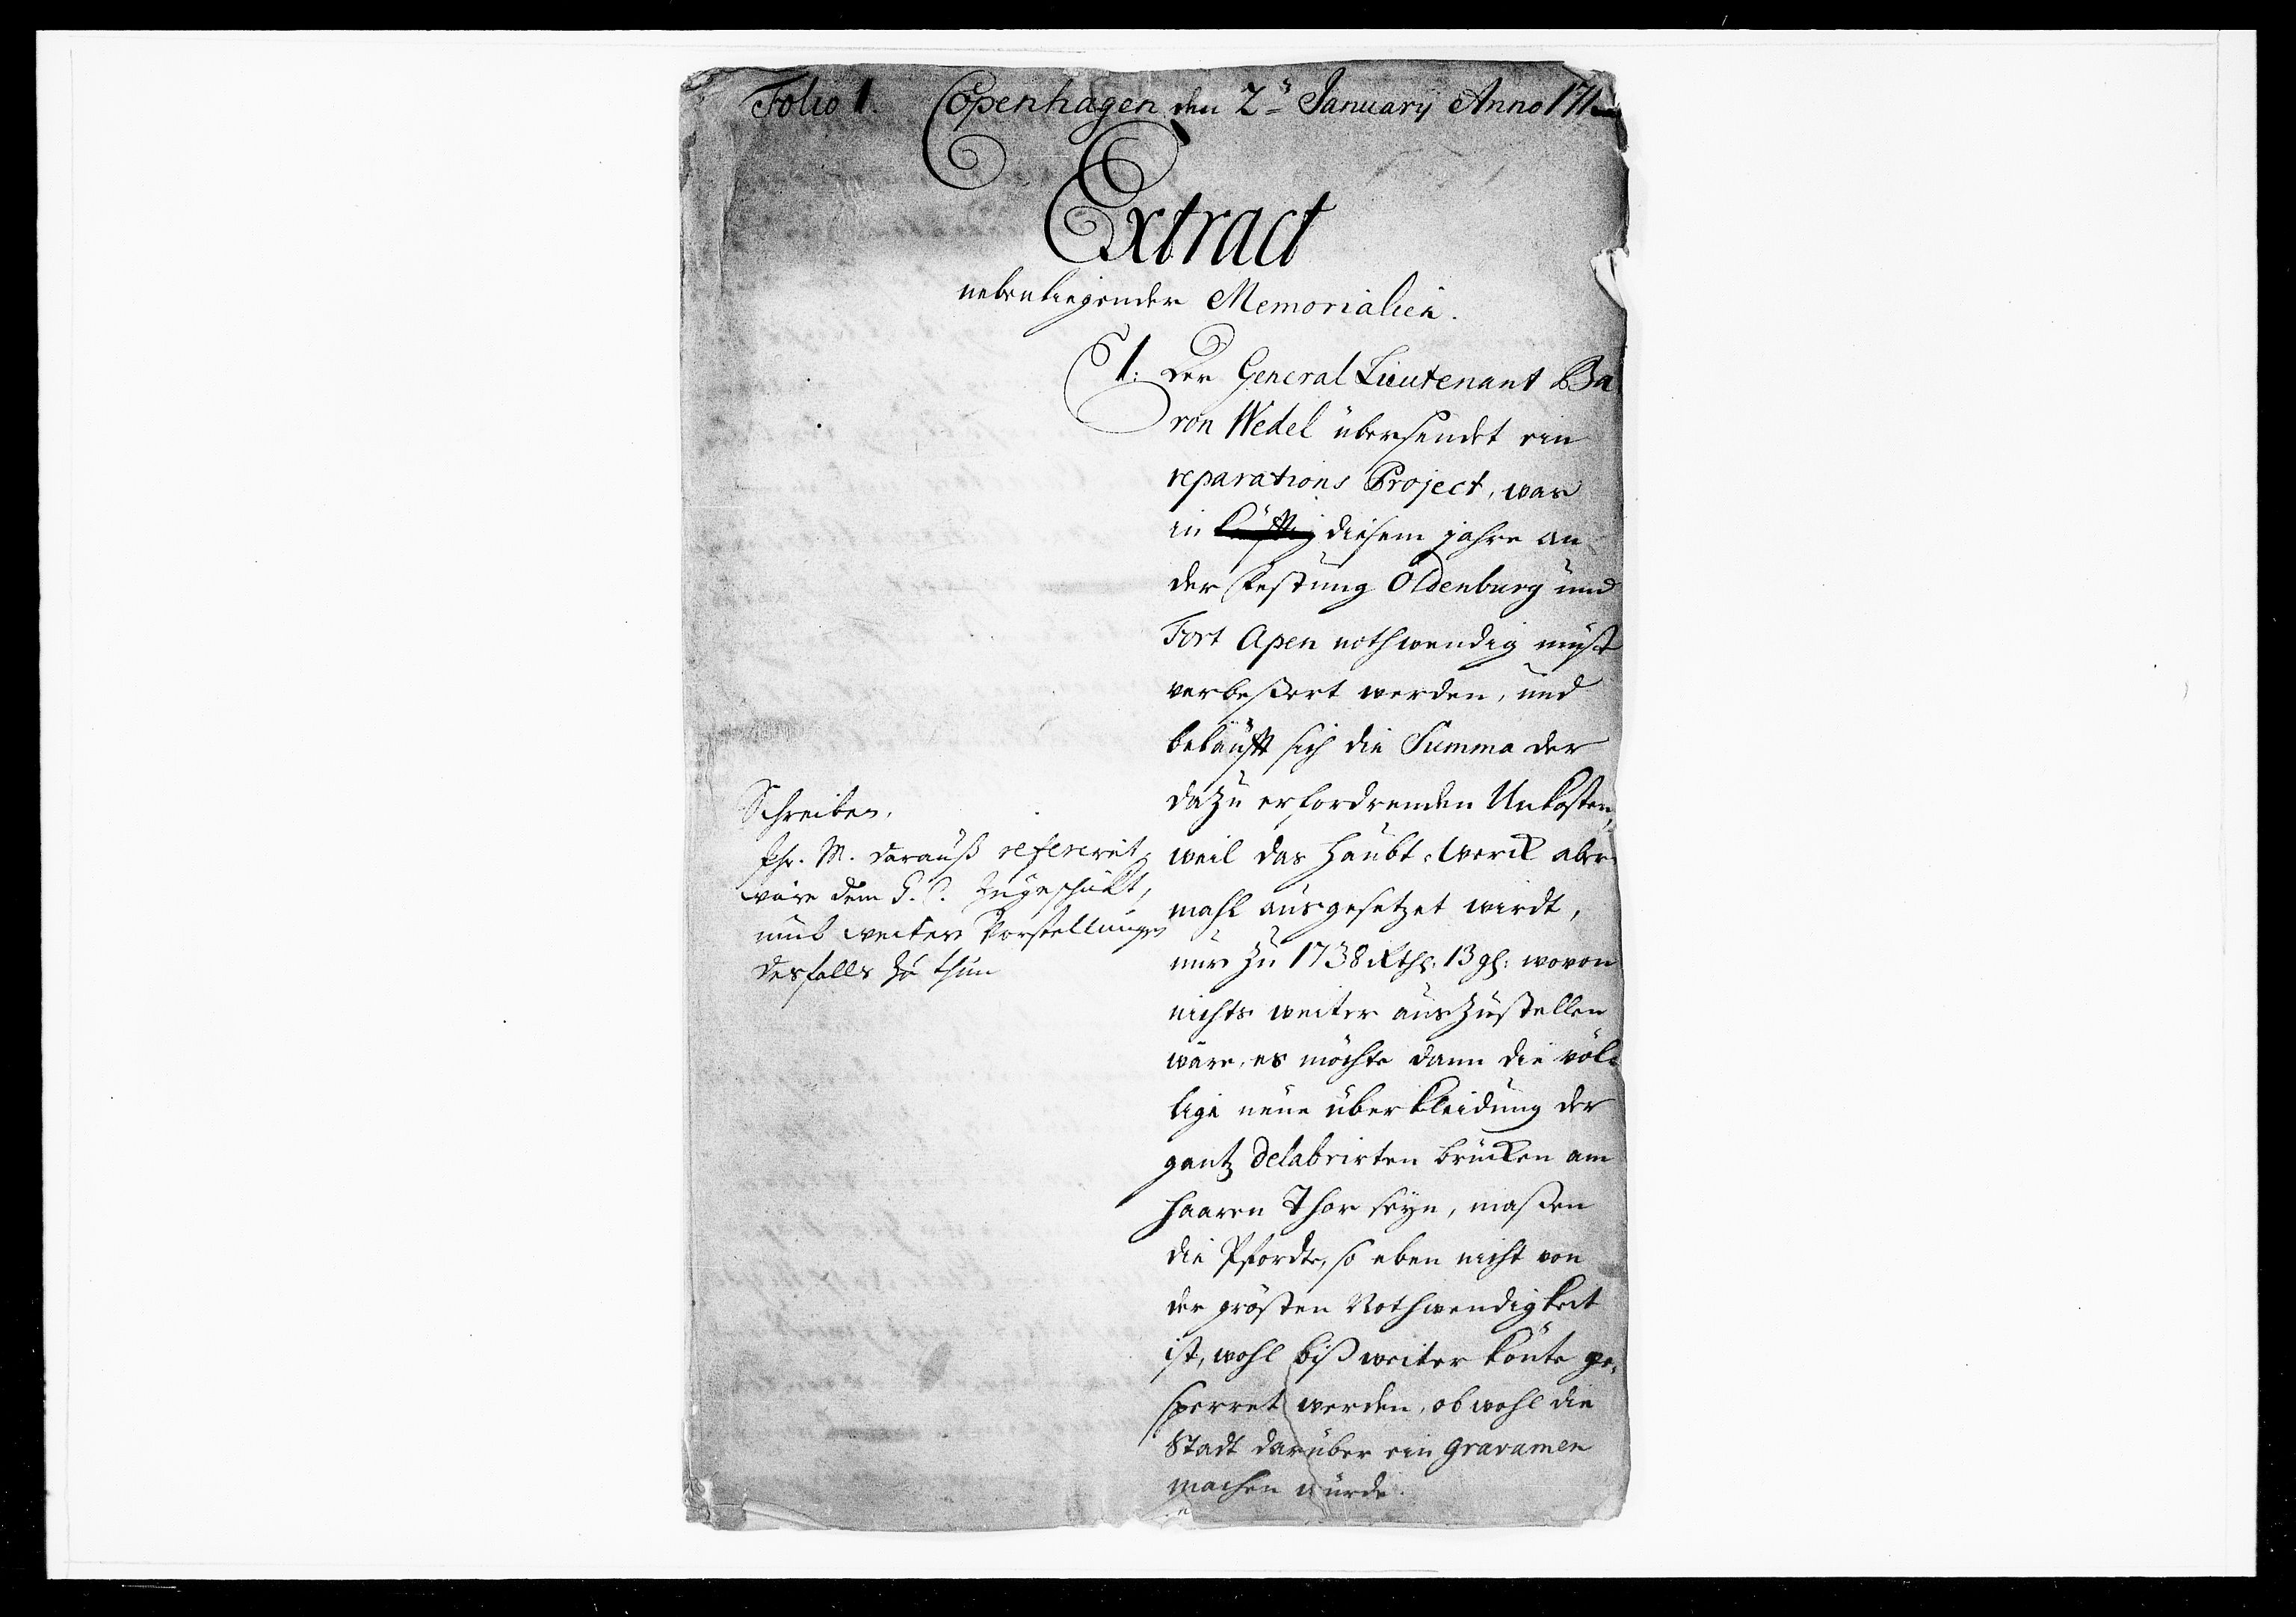 Folio 1. Copenhagen den 2ᵗ January Anno 171
Extract
nebenliegender Memorialien.
1. Der General Lieutenant Ba
ron Wedel übersendet ein
reparations Project, was
in diesem jahre an
der Festung Oldenburg und
Fort Apen nothwendig müst
verbeßert werden, und
beläufft sich die Summa der
dazu erfordrenden Unkosten,
weil das Haubt-Werck aber
mahl ausgesetzet wirdt,
nur zu 1738 Rthl: 13 gl: wovon
nichts weiter auszustellen
wäre, es möchte dann die völ-
lige neue überkleidung der
gantz delabrirten brücken am
Haaren Thor seyn, maßen
die Pfordte, so eben nicht von
der grösten Nothwendigkeit
ist, wohl biß weiter könte ge-
sperret werden, obwohl die
Stadt darüber ein gravamen
machen würde.
Schreiben.
Ihr. M. darauß refereret,
wäre dem G. C. zugeschickt,
umb weiter Vorstellungen
desfalls zu thun